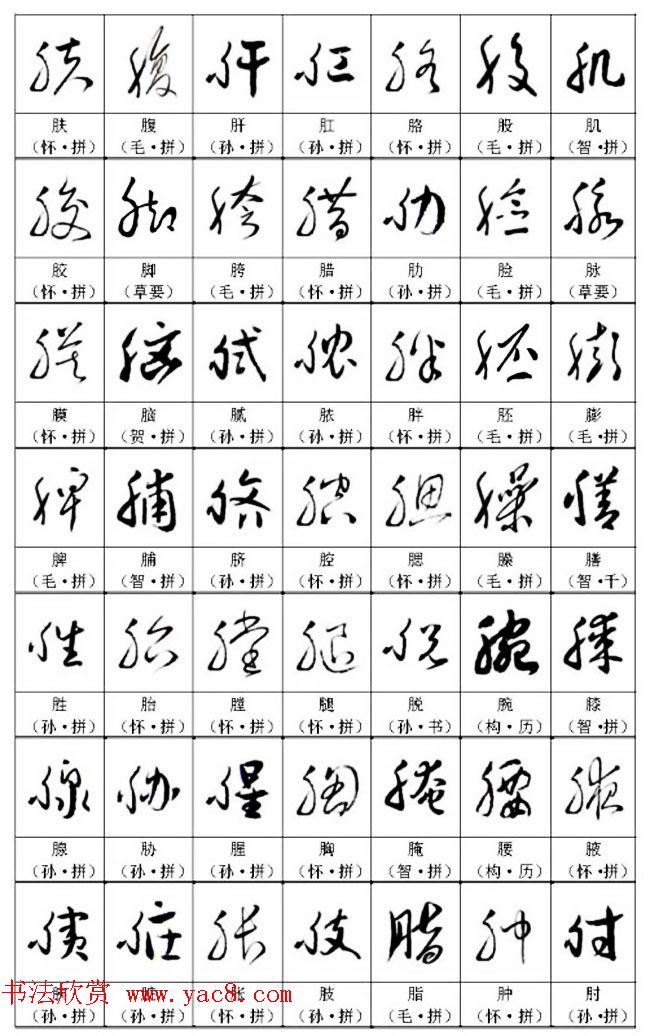 肤 腹 肝 肛 胳 股 肌
(怀·拼) (毛·拼) (孙·拼) (孙·拼) (怀·拼) (毛·拼) (智·拼)
胶 脚 胯 腊 肋 脸 脉
(怀·拼) (草要) (毛·拼) (怀·拼) (孙·拼) (毛·拼) (草要)
膜 脑 腻 脓 胖 胚 膨
(怀·拼) (贺·拼) (孙·拼) (孙·拼) (怀·拼) (毛·拼) (毛·拼)
脾 脯 脐 腔 腮 臊 膳
(毛·拼) (智·拼) (孙·拼) (怀·拼) (怀·拼) (毛·拼) (智·千)
胜 胎 膛 腿 脱 腕 膝
(孙·拼) (怀·拼) (怀·拼) (怀·拼) (孙·书) (构·历) (智·拼)
腺 胁 腥 胸 腌 腰 腋
(孙·拼) (孙·拼) (孙·拼) (怀·拼) (智·拼) (构·历) (怀·拼)
胀 肢 脂 肿 肘
书法欣赏 www.yac8.com
(孙·拼) (孙·拼) (怀·拼) (孙·拼) (毛·拼) (怀·拼) (孙·拼)